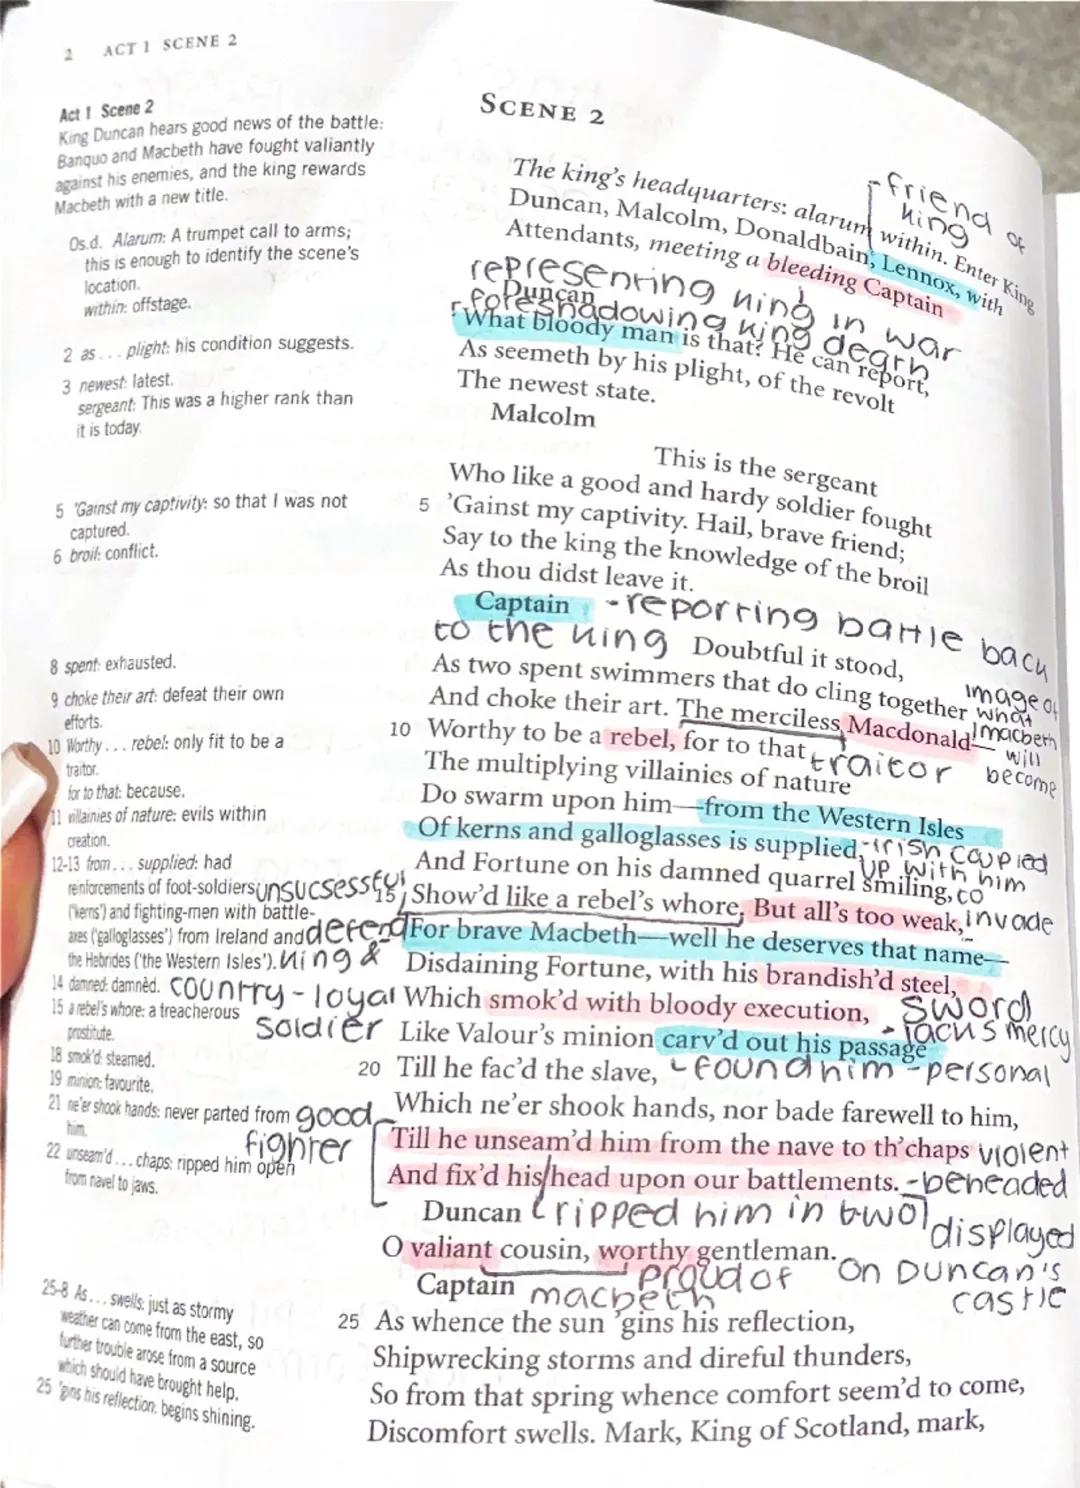 2 ACT 1 SCENE 2
Act 1 Scene 2
King Duncan hears good news of the battle:
Banquo and Macbeth have fought valiantly
against his enemies, and the king rewards
Macbeth with a new title.
0s.d. Alarum: A trumpet call to arms;
this is enough to identify the scene's
location.
within: offstage.
2 as . . . plight: his condition suggests.
3 newest: latest.
sergeant: This was a higher rank than
it is today.
5 'Gainst my captivity: so that I was not
captured.
6 broil: conflict.
8 spent: exhausted.
9 choke their art: defeat their own
efforts.
10 Worthy . . . rebel: only fit to be a
traitor.
for to that: because.
11 villainies of nature: evils within
creation.
12-13 from . . . supplied: had
reinforcements of foot-soldiers
('kerns') and fighting-men with battle-
axes ('galloglasses') from Ireland and
the Hebrides ('the Western Isles').
14 damned: damnèd.
15 a rebel's whore: a treacherous
prostitute.
18 smok'd: steamed.
19 minion: favourite.
21 ne'er shook hands: never parted from
him.
22 unseam'd . . . chaps: ripped him open
from navel to jaws.
25-8 As . . . swells: just as stormy
weather can come from the east, so
further trouble arose from a source
which should have brought help.
25 'gins his reflection: begins shining.
SCENE 2
The king's headquarters: alarum within. Enter King
Duncan, Malcolm, Donaldbain, Lennox, with
Attendants, meeting a bleeding Captain
-friend of
king
representing king in war
Duncan
foreshadowing king death
What bloody man is that? He can report,
As seemeth by his plight, of the revolt
The newest state.
Malcolm
This is the sergeant
Who like a good and hardy soldier fought
5 'Gainst my captivity. Hail, brave friend;
Say to the king the knowledge of the broil
As thou didst leave it.
Captain -reporting battle back
to the king Doubtful it stood,
As two spent swimmers that do cling together
And choke their art. The merciless Macdonald—
image of
what
macbeth
will
become
10 Worthy to be a rebel, for to that
traitor
The multiplying villainies of nature
Do swarm upon him—from the Western Isles
Of kerns and galloglasses is supplied,
-irish coupled
up with him
to
invade
And Fortune on his damned quarrel smiling,
unsucsessful
15 Show'd like a rebel's whore. But all's too weak,
defend
king &
country - loyal
soldier
For brave Macbeth—well he deserves that name—
Disdaining Fortune, with his brandish'd steel,
sword
Which smok'd with bloody execution,
- lacks mercy
Like Valour's minion carv'd out his passage
20 Till he fac'd the slave,
found him - personal
Which ne'er shook hands, nor bade farewell to him,
good
fighter
Till he unseam'd him from the nave to th'chaps
violent
And fix'd his head upon our battlements.
-beheaded
Duncan
ripped him in two
displayed
on Duncan's
castle
O valiant cousin, worthy gentleman.
proud of
macbeth
Captain
25 As whence the sun 'gins his reflection,
Shipwrecking storms and direful thunders,
So from that spring whence comfort seem'd to come,
Discomfort swells. Mark, King of Scotland, mark,